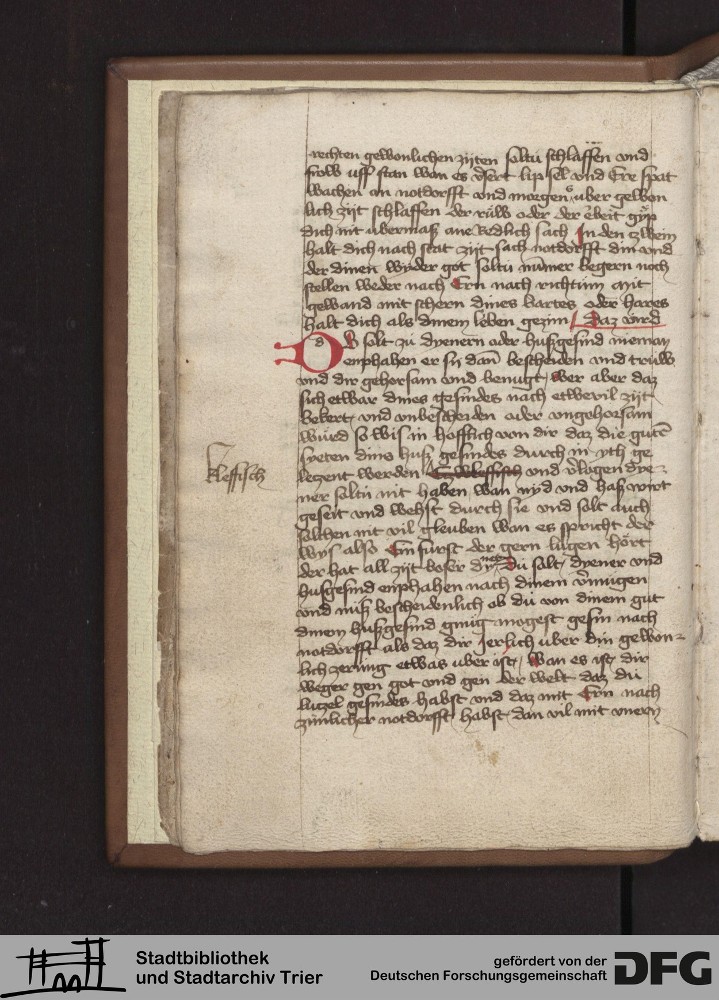 rechten gewonlichen zijten soltu schlaffen vnd
frow uff stan wan es v̈sert lip sel vnd Ere spat
wachen an notdorfft vnd morgens uber gewon
lich zijt schlaffen der rüw oder der ebeit gijp
dich nit ubermasz ane Redlich sach In den zwein
halt dich nach stat zijt sach notdorfft din vnd
der dinen wyder got soltu nūmer begern noch
stellen weder nach Ern nach richtum Mit
gewand mit schern dines bartes oder hares
halt dich als dinem leben gezim Daz vird
DV solt zu dyenern oder huszgesind nieman
emphahen er sij dan̄ bescheiden vnd truw
vnd dir gehorsam vnd benugt wer aber daz
sich etwar dines gesindes nach etwevil zijt
bekert vnd vnbescheiden oder vngehorsam
würd so wis in höfflich von dir daz die gutē
syeten dins husz gesindes durch in yth ge
lezent werden vnd vlogen dye-
kleffisch
ner soltu nit haben wan nyd vnd hasz wirt
geseit vnd wehst durch sie vnd solt auch
solchen nit vil gleuben wan es spricht der
wys also Ein furst der gern lugen hört
der hat all zijt boser dyner Du solt dyener vnd
huszgesind emphahen nach dinem v̄mugen
vnd nüsz bescheidenlich ob du von dinem gut
dinem huszgesind gnug mogest gesin nach
notdorfft als daz dir Jerlich uber din gewon-
lich zerung etwas uber ist Wan es ist dir
weger gen got vnd gen der welt daz du
lutzel gesindes habst vnd daz mit Ern nach
zimlicher notdorfft habst dan vil mit vnern
Stadtbibliothek
und Stadtarchiv Trier
gefördert von der
Deutschen Forschungsgemeinschaft
DFG